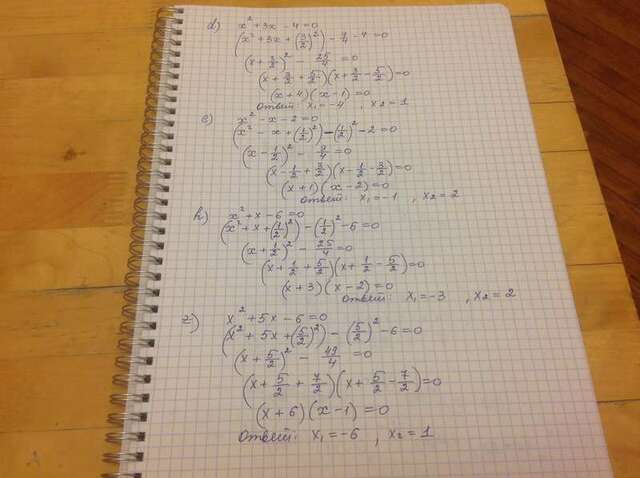 d) x² + 3x - 4 = 0
(x² + 3x + (3/2)²) - 9/4 - 4 = 0
(x + 3/2)² - 25/4 = 0
(x + 3/2 + 5/2)(x + 3/2 - 5/2) = 0
(x + 4)(x - 1) = 0
Ответ: x₁ = -4, x₂ = 1
e) x² - x - 2 = 0
(x² - x + (1/2)²) - (1/2)² - 2 = 0
(x - 1/2)² - 9/4 = 0
(x - 1/2 + 3/2)(x - 1/2 - 3/2) = 0
(x + 1)(x - 2) = 0
Ответ: x₁ = -1, x₂ = 2
h) x² + x - 6 = 0
(x² + x + (1/2)²) - (1/2)² - 6 = 0
(x + 1/2)² - 25/4 = 0
(x + 1/2 + 5/2)(x + 1/2 - 5/2) = 0
(x + 3)(x - 2) = 0
Ответ: x₁ = -3, x₂ = 2
z) x² + 5x - 6 = 0
(x² + 5x + (5/2)²) - (5/2)² - 6 = 0
(x + 5/2)² - 49/4 = 0
(x + 5/2 + 7/2)(x + 5/2 - 7/2) = 0
(x + 6)(x - 1) = 0
Ответ: x₁ = -6, x₂ = 1